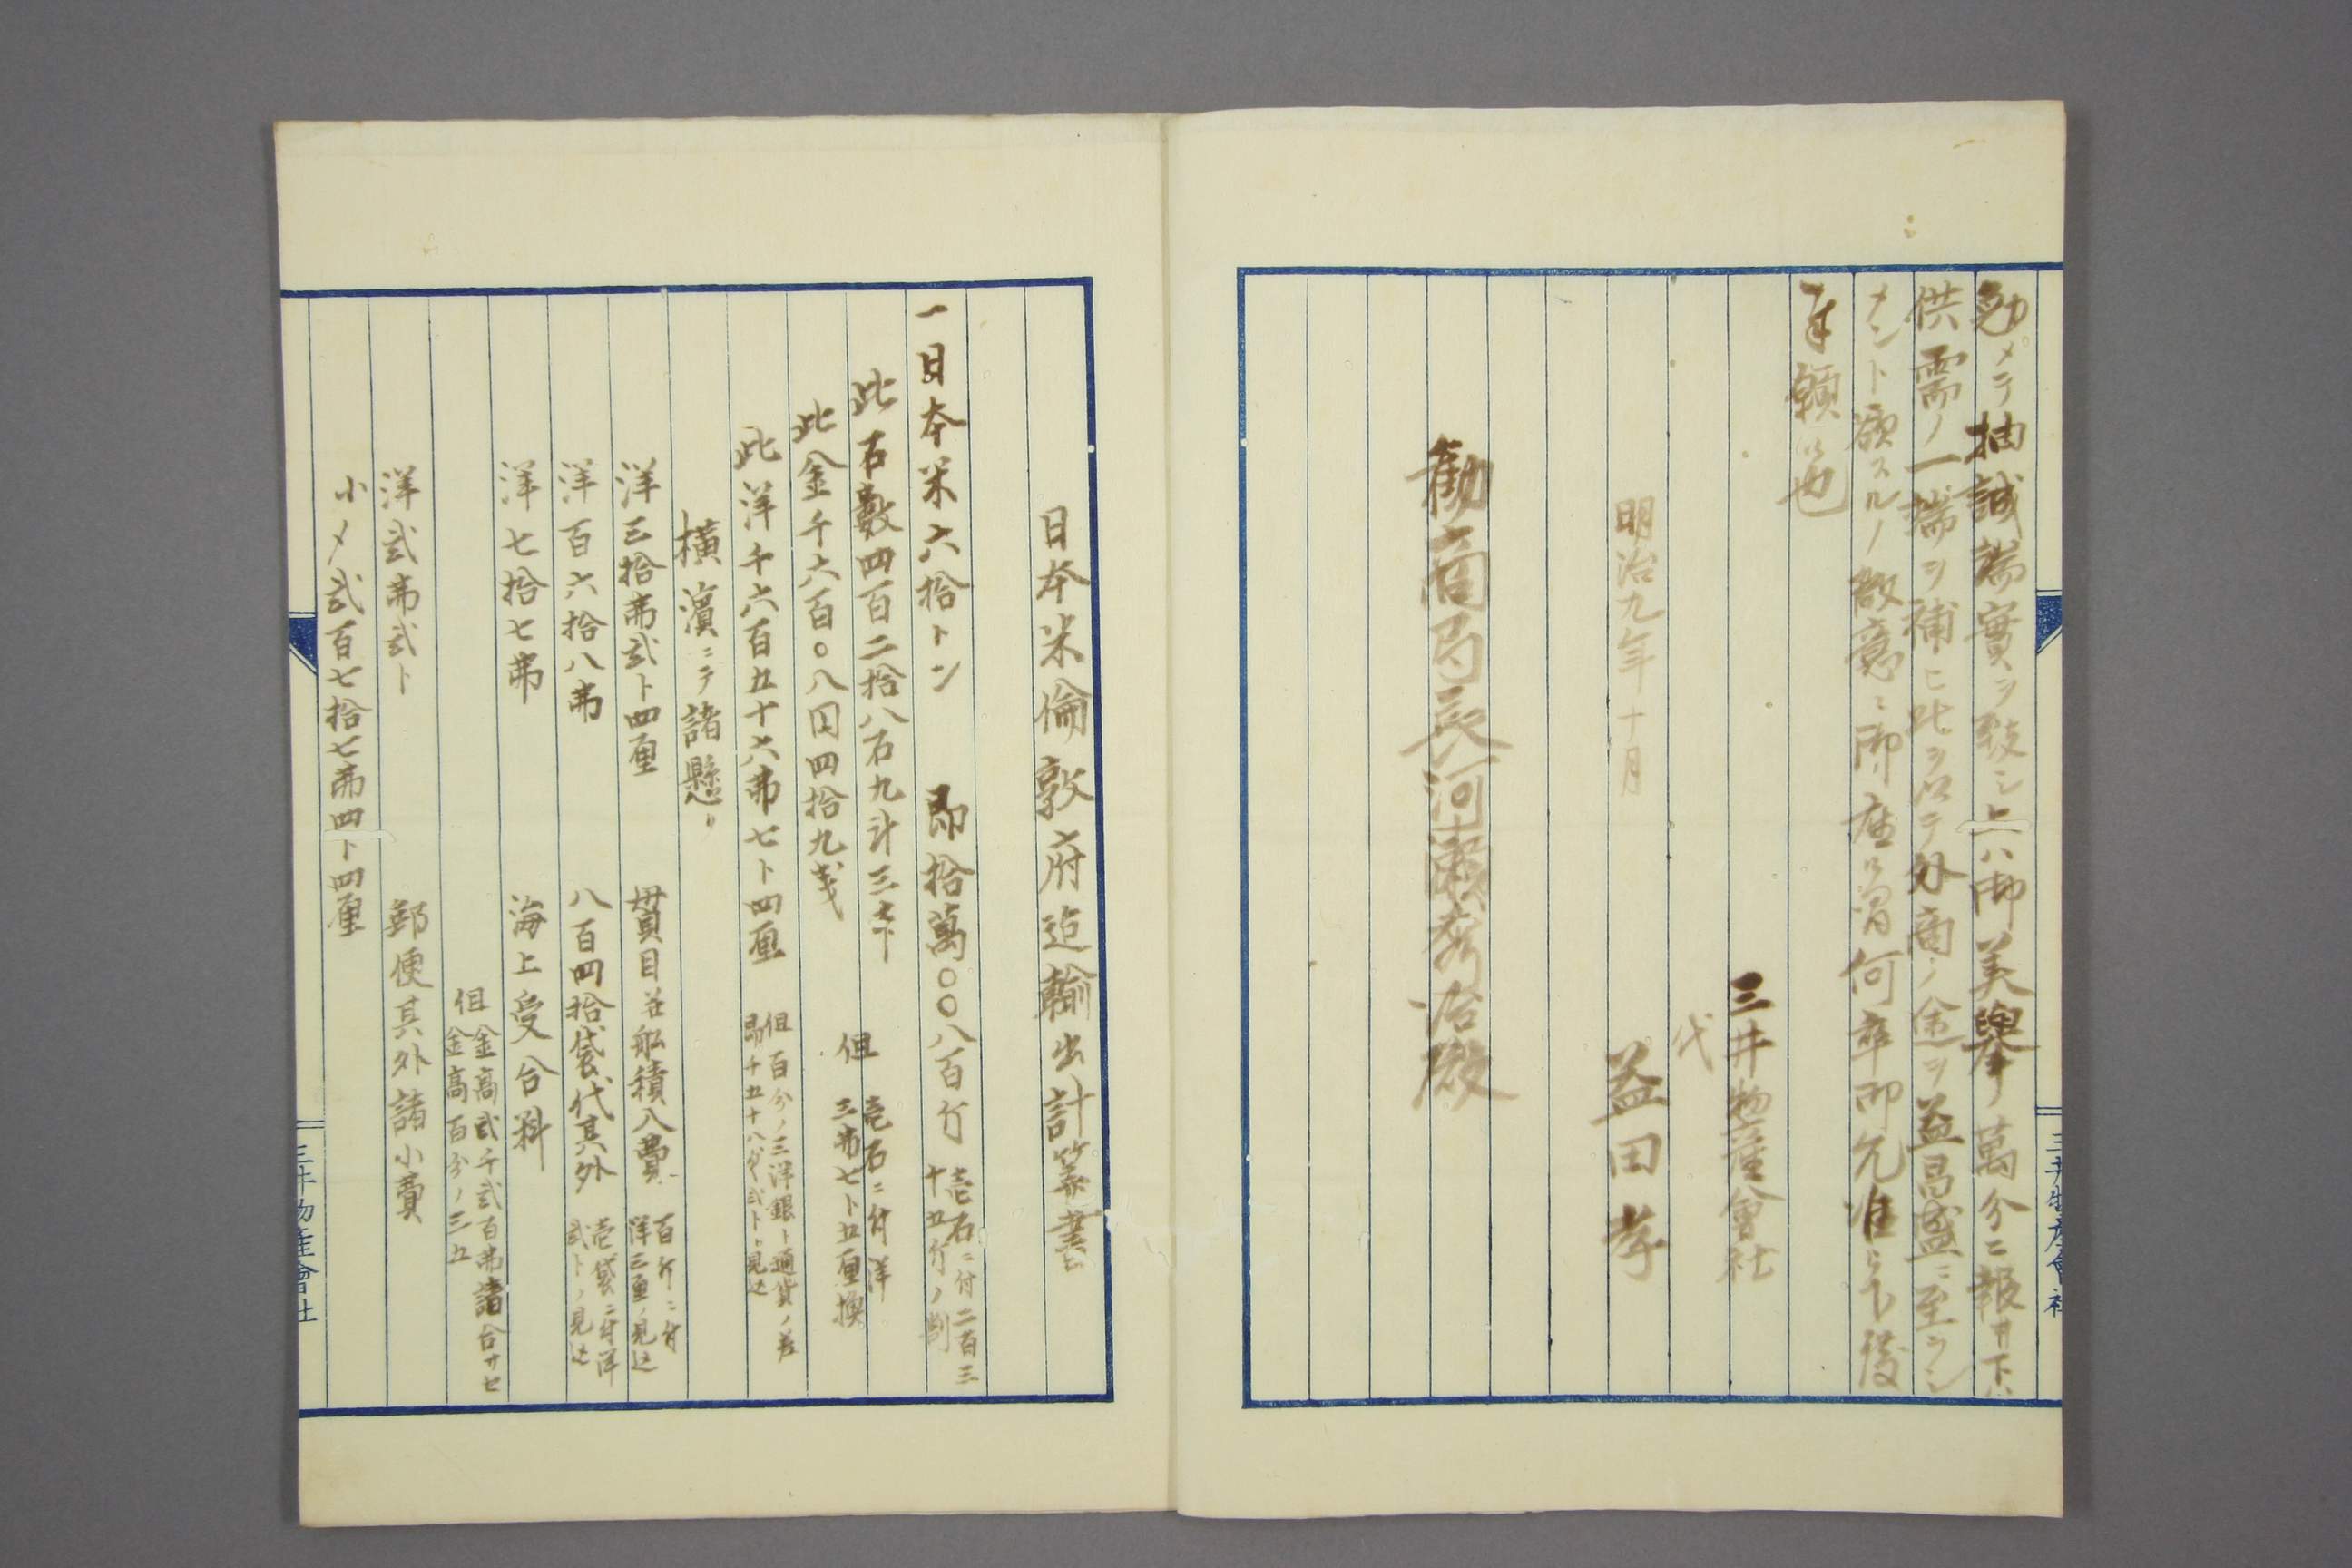 勉メテ抽誠端實ヲ致シ上ハ御美擧ノ萬分ニ報井下ハ
供需ノ一端ヲ補ヒ此ヲ以テ外商ノ途ヲ益昌盛ニ至ラシ
メント欲スルノ微意ニ御座候間何卒御允准被成下度
奉願候也
三井物産會社
代
益田孝
明治九年十月
勸商局長河瀬秀治殿
三井物産會社
日本米倫敦府迄輸出計算書
一日本米六拾トン 即拾萬〇〇八百斤 壱石ニ付二百三
十五斤ノ割
此石數四百二拾八石九斗三升 但 壱石ニ付洋
三弗七十五厘換
此金千六百〇八円四拾九戔
此洋千六百五十六弗七ト四厘 但百分ノ三洋銀ト通貨ノ差
即千五十八
横濱ニテ諸懸リ
洋三拾弗弐ト四厘 貫目并船積入費 百斤ニ付
洋三厘ノ見込
洋百六拾八弗 八百四拾袋代其外 壱袋ニ付洋
弐トノ見込
洋七拾七弗 海上受合料
但 金高弐千弐百弗請合サセ
金高百分ノ三五
洋弐弗弐ト 郵便其外諸小費
小〆弐百七拾七弗四ト四厘
三井物産會社